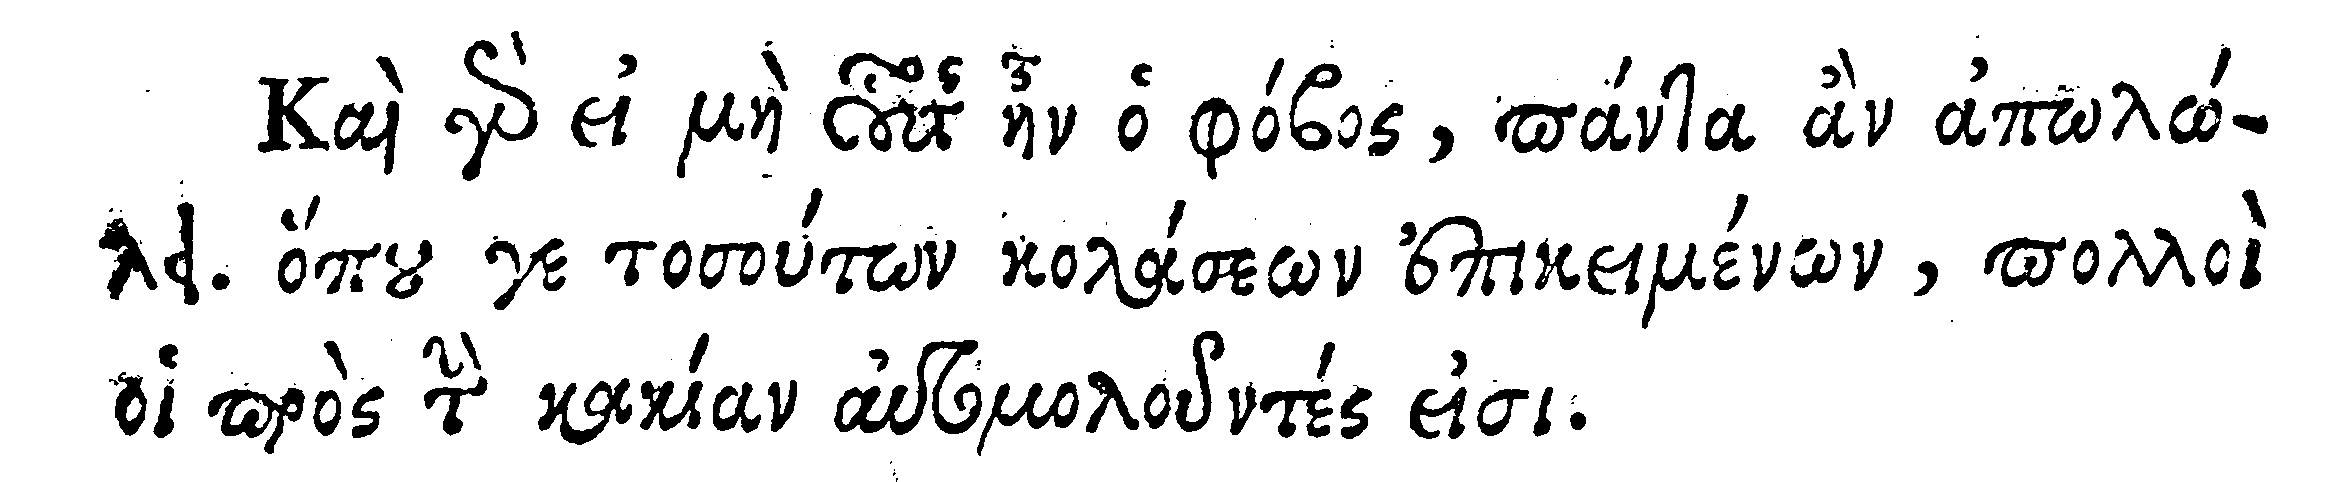 Καὶ γὰρ εἰ μὴ οὗτος ἦν ὁ φόβος, πάντα ἂν ἀπωλώ-
λει. ὅπου γε τοσούτων κολάσεων ἐπικειμένων, πολλοὶ
οἱ πρὸς τὴν κακίαν αὐτομολοῦντές εἰσι.